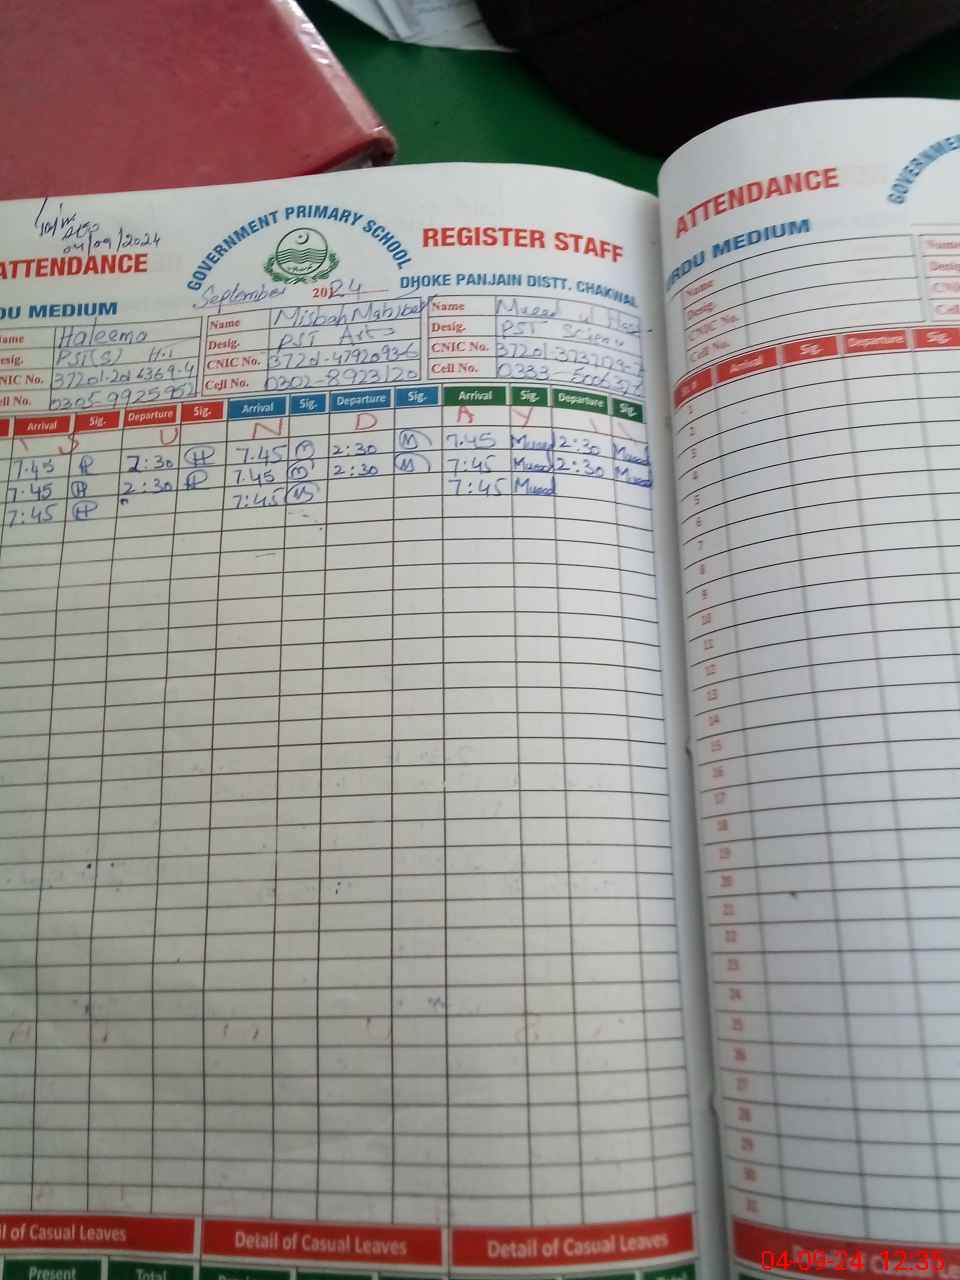 04/09/2024
ATTENDANCE GOVERNMENT PRIMARY SCHOOL REGISTER STAFF
DU MEDIUM September 2024 DHOKE PANJAIN DISTT. CHAKWAL
ame Haleema Name Misbah Name Mueed
esig. PST(S) Desig. PST Arts Desig. PST Science
NIC No. CNIC No. 37201-4792093-6 CNIC No.
ell No. 0305 9925952 Cell No. 0302-8923120 Cell No.
Arrival Sig. Departure Sig. Arrival Sig. Departure Sig. Arrival Sig. Departure Sig.
S U N D A Y
7.45 H 2:30 H 7.45 M 2:30 M 7.45 Mueed 2:30 Mueed
7.45 H 2:30 H 7.45 M 2:30 M 7:45 Mueed 2:30 Mueed
7:45 H 7:45 M 7:45 Mueed
il of Casual Leaves Detail of Casual Leaves Detail of Casual Leaves
Present Total
ATTENDANCE GOVERNMEN
URDU MEDIUM
Name Name
Desig. Desig
CNIC No. CNI
Cell No. Cel
Arrival Sig. Departure Sig.
1
2
3
4
5
6
7
8
9
10
11
12
13
14
15
16
17
18
19
20
21
22
23
24
25
26
27
28
29
30
31
04-09-24 12:35